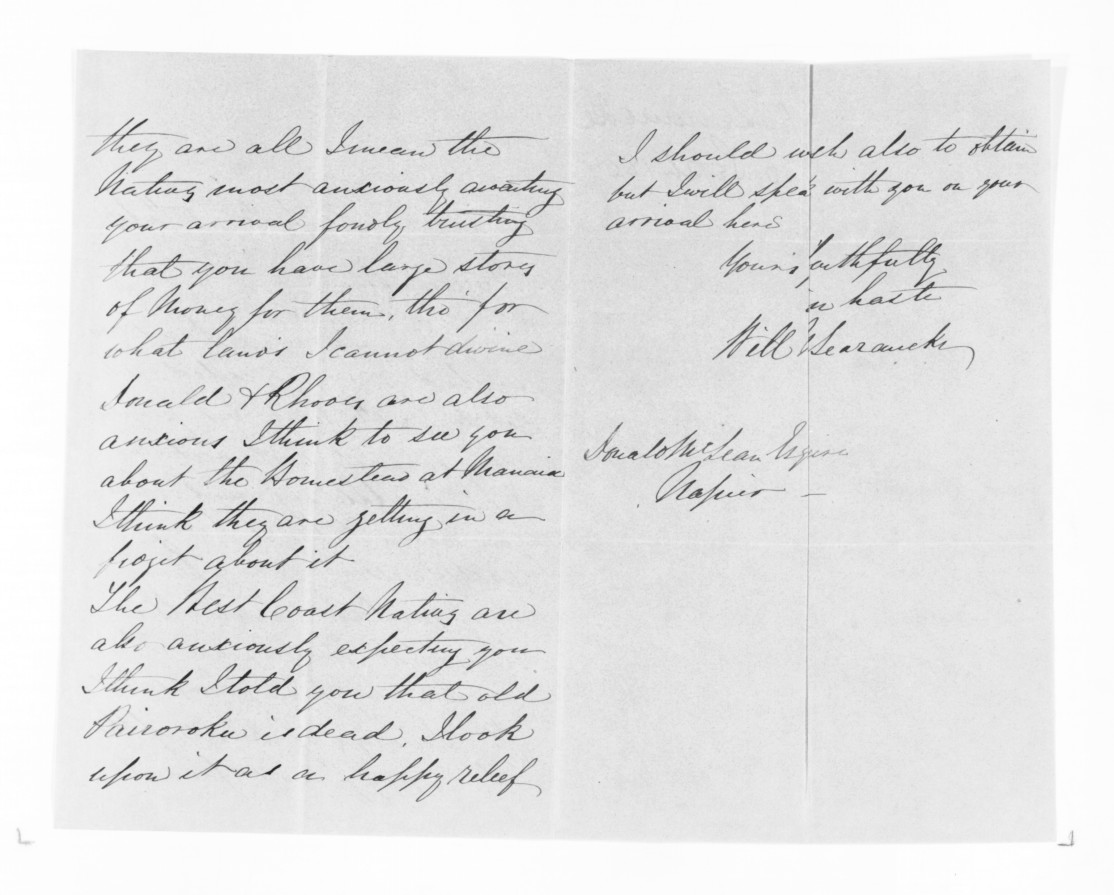 they are all I mean the
Natives most anxiously awaiting
your arrival fondly trusting
that you have large stores
of Money for them, tho' for
what lands I cannot divine
Donald & Rhodes are also
anxious I think to see you
about the Homestead at Manaia
I think they are getting in a
fidget about it
The West Coast Natives are
also anxiously expecting you
I think I told you that old
Pairoroku is dead, I look
upon it as a happy relief
I should wish also to obtain
but I will speak with you on your
arrival here
Yours faithfully
in haste
Will Searancke
Donald McLean Esquire
Napier —